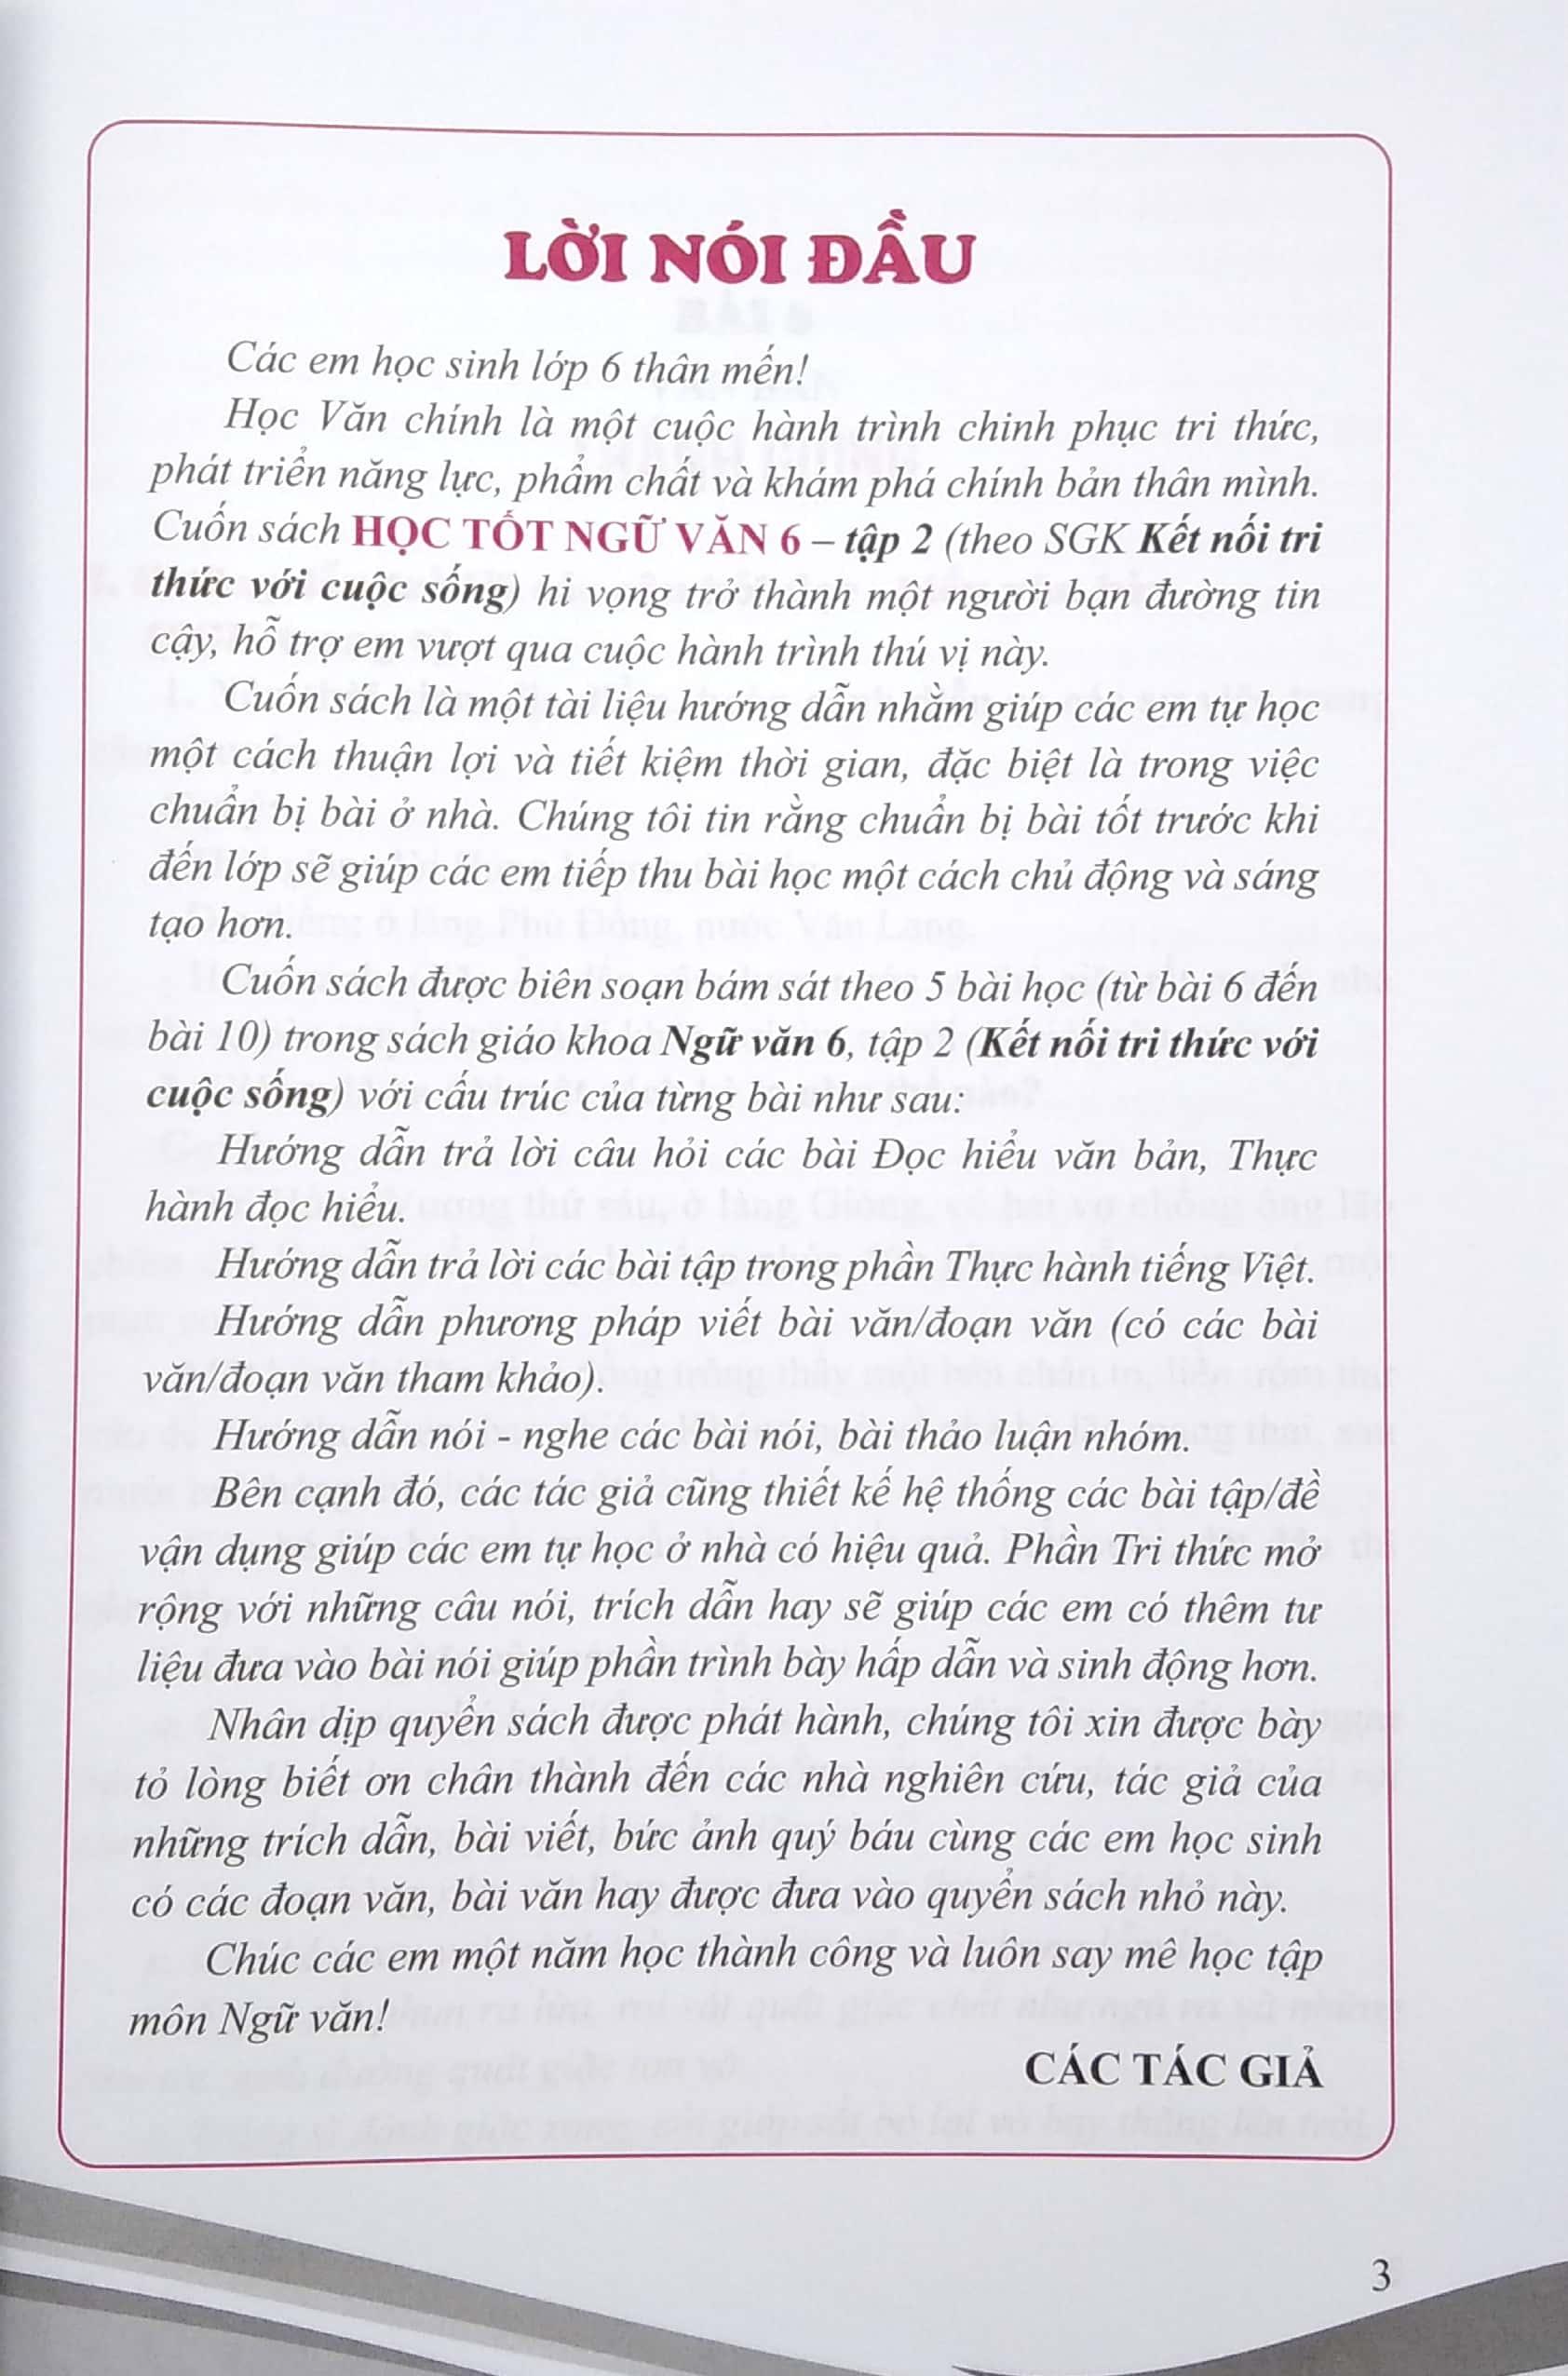 LỜI NÓI ĐẦU
Các em học sinh lớp 6 thân mến!
Học Văn chính là một cuộc hành trình chinh phục tri thức,
phát triển năng lực, phẩm chất và khám phá chính bản thân mình.
Cuốn sách HỌC TỐT NGỮ VĂN 6 – tập 2 (theo SGK Kết nối tri
thức với cuộc sống) hi vọng trở thành một người bạn đường tin
cậy, hỗ trợ em vượt qua cuộc hành trình thú vị này.
Cuốn sách là một tài liệu hướng dẫn nhằm giúp các em tự học
một cách thuận lợi và tiết kiệm thời gian, đặc biệt là trong việc
chuẩn bị bài ở nhà. Chúng tôi tin rằng chuẩn bị bài tốt trước khi
đến lớp sẽ giúp các em tiếp thu bài học một cách chủ động và sáng
tạo hơn.
Cuốn sách được biên soạn bám sát theo 5 bài học (từ bài 6 đến
bài 10) trong sách giáo khoa Ngữ văn 6, tập 2 (Kết nối tri thức với
cuộc sống) với cấu trúc của từng bài như sau:
Hướng dẫn trả lời câu hỏi các bài Đọc hiểu văn bản, Thực
hành đọc hiểu.
Hướng dẫn trả lời các bài tập trong phần Thực hành tiếng Việt.
Hướng dẫn phương pháp viết bài văn/đoạn văn (có các bài
văn/đoạn văn tham khảo).
Hướng dẫn nói - nghe các bài nói, bài thảo luận nhóm.
Bên cạnh đó, các tác giả cũng thiết kế hệ thống các bài tập/đề
vận dụng giúp các em tự học ở nhà có hiệu quả. Phần Tri thức mở
rộng với những câu nói, trích dẫn hay sẽ giúp các em có thêm tư
liệu đưa vào bài nói giúp phần trình bày hấp dẫn và sinh động hơn.
Nhân dịp quyển sách được phát hành, chúng tôi xin được bày
tỏ lòng biết ơn chân thành đến các nhà nghiên cứu, tác giả của
những trích dẫn, bài viết, bức ảnh quý báu cùng các em học sinh
có các đoạn văn, bài văn hay được đưa vào quyển sách nhỏ này.
Chúc các em một năm học thành công và luôn say mê học tập
môn Ngữ văn!
CÁC TÁC GIẢ
3